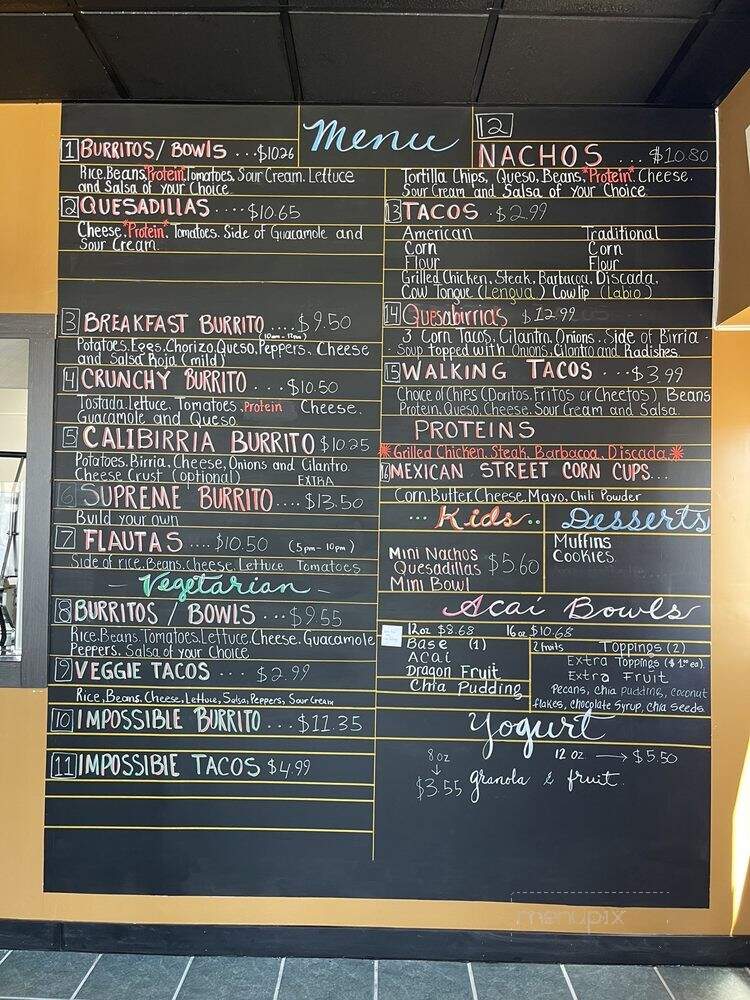 Menu
1 BURRITOS/BOWLS ...$10.26
Rice.Beans.*Protein*.Tomatoes. Sour Cream. Lettuce
and Salsa of your Choice
2 QUESADILLAS ....$10.65
Cheese.*Protein*. Tomatoes. Side of Guacamole and
Sour Cream.
3 BREAKFAST BURRITO....$9.50
Potatoes.Eggs.Chorizo.Queso.Peppers. Cheese
and Salsa Roja (mild)
4 CRUNCHY BURRITO ...$10.50
Tostada.Lettuce. Tomatoes.Protein Cheese.
Guacamole and Queso
5 CALIBIRRIA BURRITO $10.25
Potatoes.Birria.Cheese.Onions and Cilantro.
Cheese Crust (optional) EXTRA
6 SUPREME BURRITO....$13.50
Build your own
7 FLAUTAS ....$10.50 (5pm-10pm)
Side of rice.Beans.Cheese.Lettuce Tomatoes
- Vegetarian -
8 BURRITOS / BOWLS ...$9.55
Rice.Beans.Tomatoes.Lettuce.Cheese.Guacamole
Peppers. Salsa of your Choice
9 VEGGIE TACOS ...$2.99
Rice,Beans,Cheese,Lettuce,Salsa,Peppers,Sour Cream
10 IMPOSSIBLE BURRITO ...$11.35
11 IMPOSSIBLE TACOS $4.99
12
NACHOS ...$10.80
Tortilla Chips, Queso, Beans,*Protein* Cheese.
Sour Cream and Salsa of your Choice
13 TACOS .$2.99
American Traditional
Corn Corn
Flour Flour
Grilled Chicken. Steak. Barbacoa. Discada.
Cow Tongue (Lengua) Cowlip (Labio)
14 Quesabirrias $12.99
3 Corn Tacos. Cilantro. Onions..Side of Birria
Soup topped with Onions, Cilantro and Radishes
15 WALKING TACOS ...$3.99
Choice of Chips (Doritos.Fritos or Cheetos) Beans
Protein.Queso.Cheese.Sour Cream and Salsa.
PROTEINS
*Grilled Chicken. Steak. Barbacoa. Discada.*
16 MEXICAN STREET CORN CUPS...
Corn.Butter.Cheese.Mayo.Chili Powder
...Kids..
Mini Nachos
Quesadillas $5.60
Mini Bowl
Desserts
Muffins
Cookies
Acaí Bowls
12oz $8.68 16oz $10.68
Base (1)
ACaí
Dragon Fruit
Chia Pudding
2 fruits Toppings (2)
Extra Toppings ($1.00 ea)
Extra Fruit
Pecans, chia pudding, coconut
flakes, chocolate syrup, chia seeds
Yogurt
8oz 12 oz → $5.50
$3.55 granola & fruit.
menupix